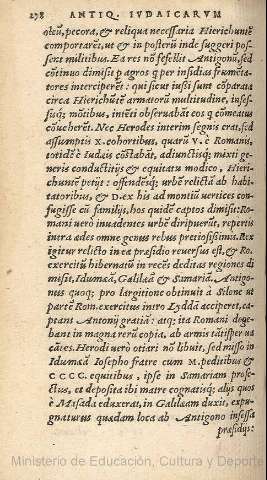 278 ANTIQ. IVDAICARVM
oleũ, pecora, & reliqua necessaria Hierichuntē
comportaret, ut & in posterũ inde suggeri pos-
sent militibus. Ea res nõ fefellit Antigonũ, sed
cõtinuo dimisit p agros q per insidias frumēta-
tores interciperēt: qui sicut iussi sunt cõparata
circa Hierichũtē armatorũ multitudine, insef-
suq; mõtibus, intēti obseruabāt eos q cõmeatus
cõueherēt. Nec Herodes interim segnis erat, sed
assumptis x. cohortibus, quarũ v. è Romanis,
totidē è Iudæis cõstabāt, adiunctisq; mixti ge-
neris conductitijs & equitatu modico, Hieri-
chuntē petijt: offendēsq; urbē relictā ab habi-
tatoribus, & D. ex his ad montiũ uertices con-
fugisse cũ familijs, hos quidē captos dimisit: Ro-
mani uerò inuadentes urbē diripuerũt, repertis
intra ædes omne genus rebus pretiosissimis. Rex
igitur relicto in ea præsidio reuersus est, & Ro.
exercitũ hibernatũ in recēs deditas regiones di
misit, Idumæā, Galilæā & Samariā. Antigo-
nus quoq; pro largitione obtinuit à Silone ut
partē Rom. exercitus intro Lyddā acciperet, ca-
ptans Antonij gratiā: atq; ita Romani dege-
bant in magna rerũ copia, ab armis tātisper ua
cātes. Herodi uerò otiari nõ libuit, sed misso in
Idumæā Iosepho fratre cum M. peditibus &
CCCC. equitibus, ipse in Samariam profe-
ctus, et deposita ibi matre cognatisq; alijs quos
è Masada eduxerat, in Galilæam duxit, expu-
gnaturus quædam loca ab Antigono insessa
præsidijs:
Ministerio de Educación, Cultura y Deporte